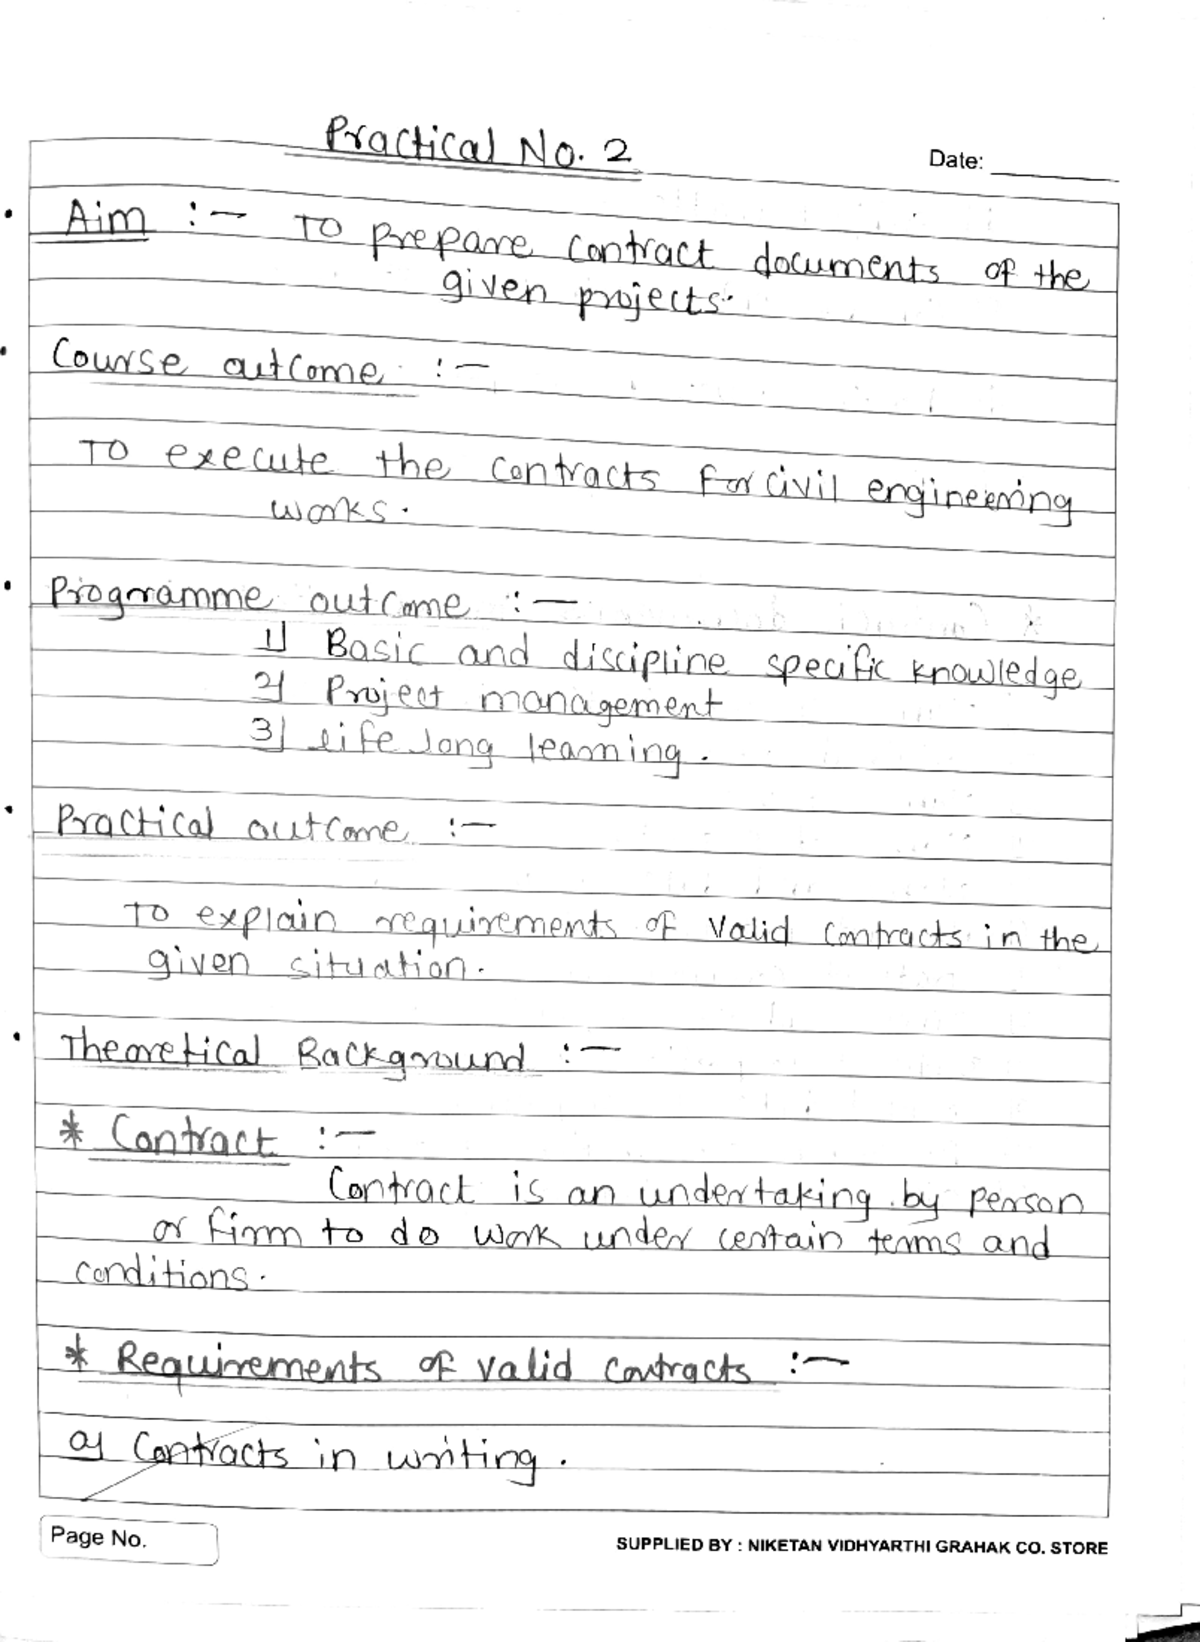 Practical No. 2
Date:
• Aim :- To prepare contract documents of the
given projects.
• Course outcome :-
To execute the contracts for civil engineering
works.
• Programme outcome :-
1) Basic and discipline specific knowledge
2) Project management
3) life long learning.
• Practical outcome :-
To explain requirements of valid contracts in the
given situation.
• Theoretical Background :-
* Contract :-
Contract is an undertaking by person
or firm to do work under certain terms and
conditions.
* Requirements of valid contracts :-
a) Contracts in writing.
Page No.
SUPPLIED BY : NIKETAN VIDHYARTHI GRAHAK CO. STORE